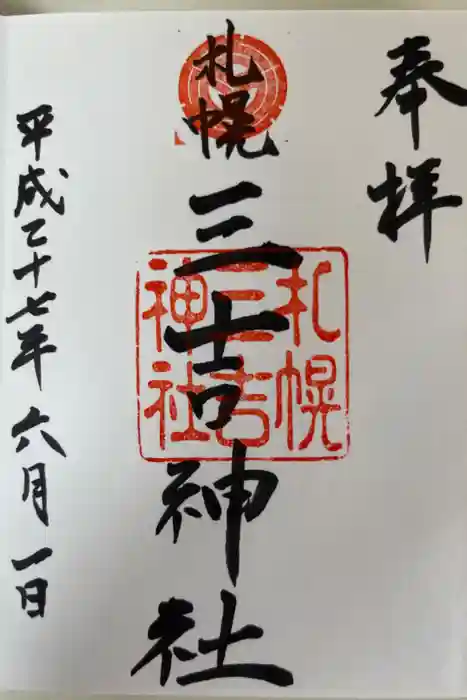 奉拝
札幌
三吉神社
札幌
三吉
神社
平成二十七年六月一日